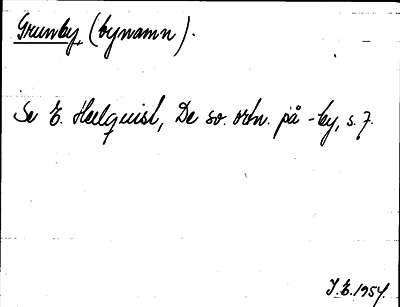 Grunby, (bynamn).
Se E. Hellquist, De sv. ortn. på -by, s. 7.
I.E. 1954.